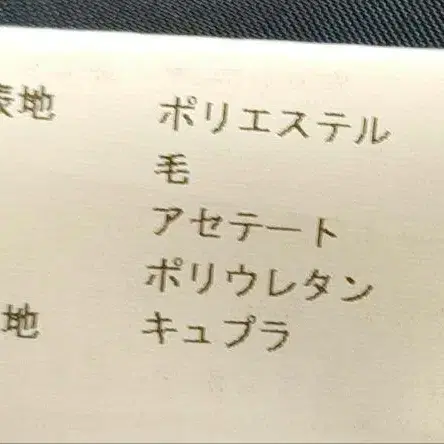 表地 ポリエステル
毛
アセテート
ポリウレタン
地 キュプラ